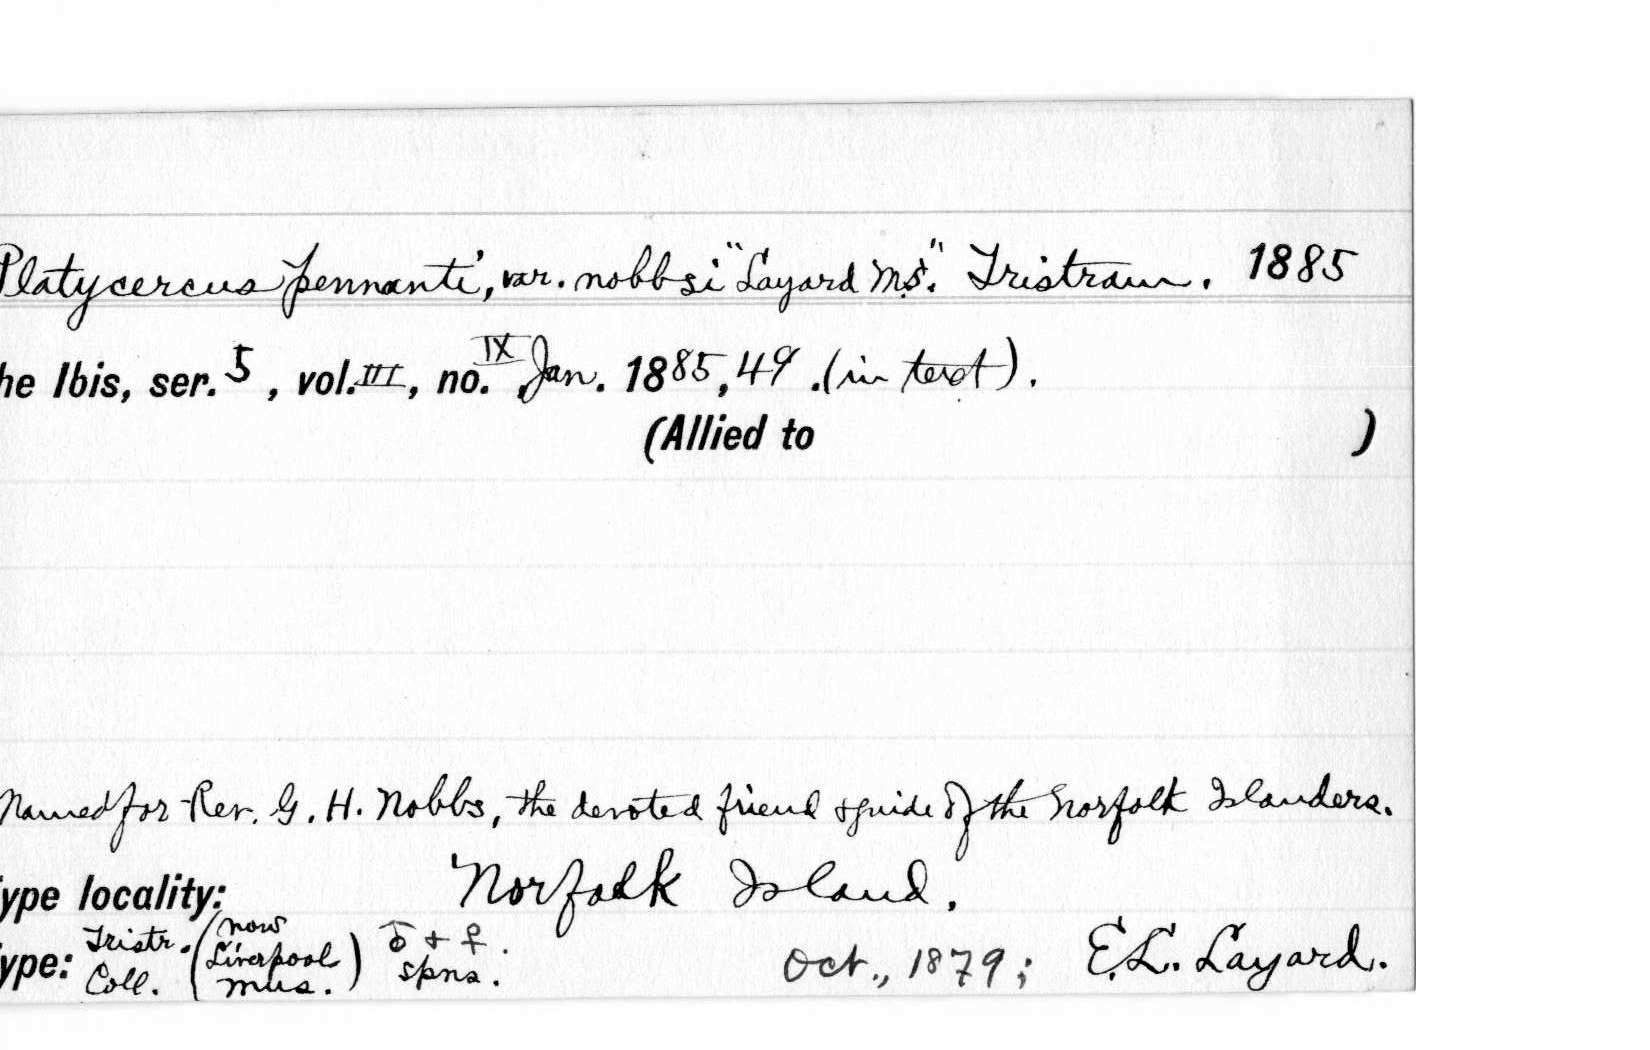 Platycercus pennanti, var. nobbsi "Layard MS." Tristram. 1885
he Ibis, ser. 5, vol. III, no. IX, Jan. 1885, 49. (in text).
(Allied to )
Named for Rev. G. H. Nobbs, the devoted friend & guide of the Norfolk Islanders.
ype locality: Norfolk Island.
ype: Tristr. Coll. (now Liverpool Mus.) ♂ + ♀ spns. Oct., 1879; E. L. Layard.